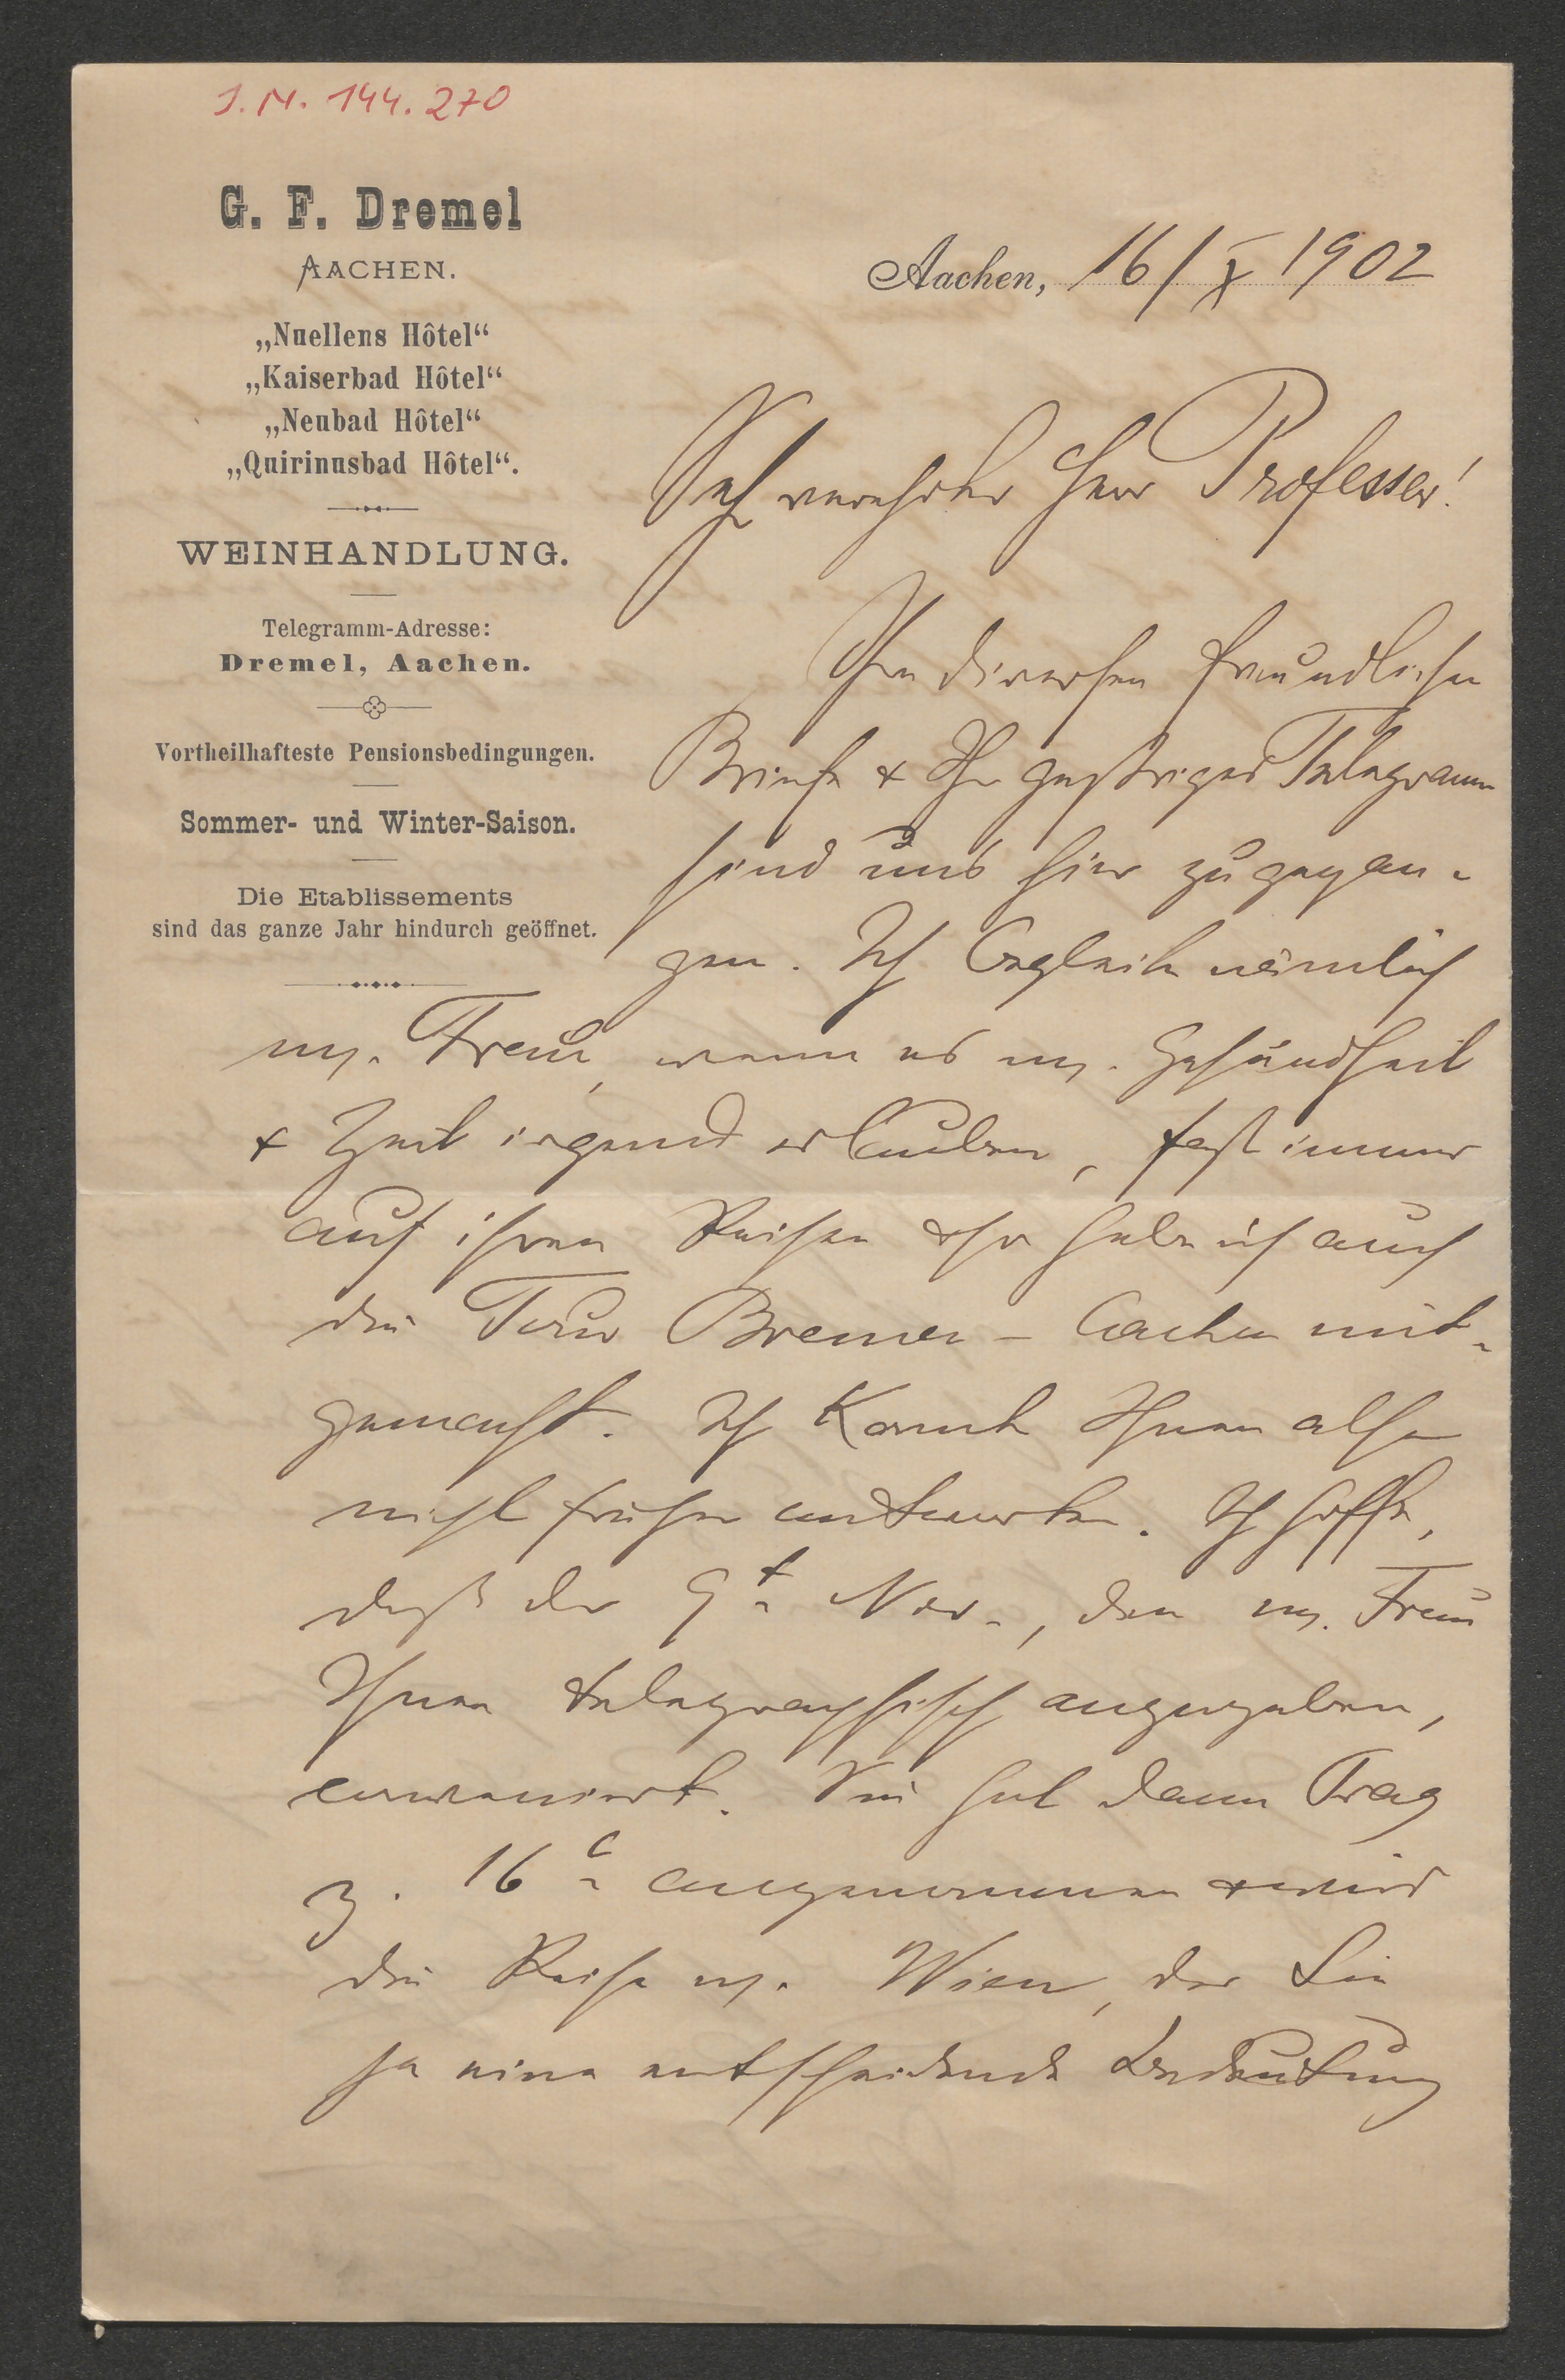 J.N. 144.270
G. F. Dremel
AACHEN.
„Nuellens Hôtel“
„Kaiserbad Hôtel“
„Neubad Hôtel“
„Quirinusbad Hôtel“.
WEINHANDLUNG.
Telegramm-Adresse:
Dremel, Aachen.
Vortheilhafteste Pensionsbedingungen.
Sommer- und Winter-Saison.
Die Etablissements
sind das ganze Jahr hindurch geöffnet.
Aachen, 16/X 1902
Sehr verehrter Herr Professor!
Ihre diversen freundlichen
Briefe & Ihr gestriges Telegramm
sind uns hier zugegan-
gen. Ich begleite nämlich
m. Frau, wenn es m. Gesundheit
& Zeit irgend erlauben, fast immer
auf ihren Reisen & so habe ich auch
die Tour Bremen – Aachen mit-
gemacht. Ich konnte Ihnen also
nicht früher antworten. Ich hoffe,
daß der 9t Nov., den m. Frau
Ihnen telegraphisch angegeben,
conveniert. Sie hat dann Prag
z. 16t angenommen & wird
die Reise n. Wien, der Sie
ja eine entscheidende Bedeutung